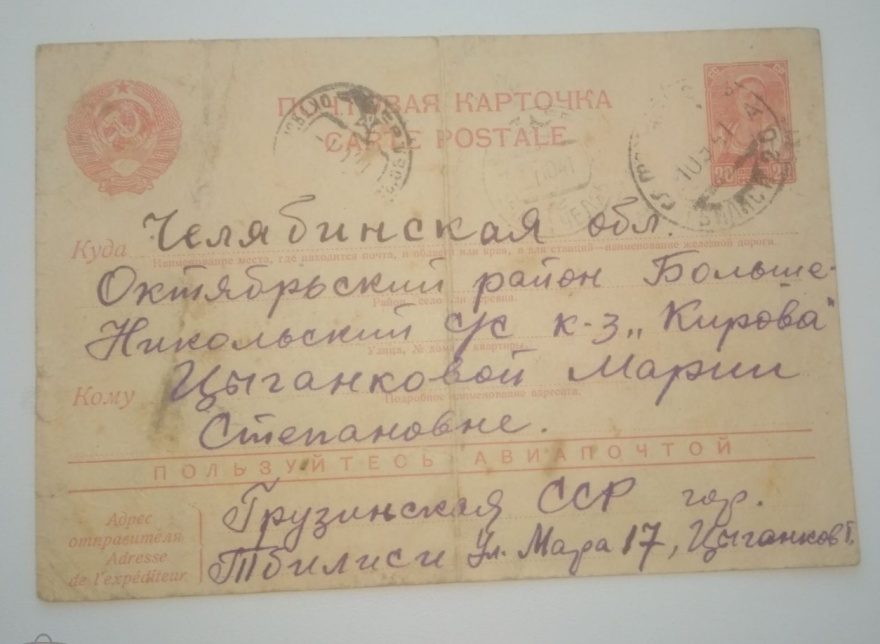 ПОЧТОВАЯ КАРТОЧКА
CARTE POSTALE
20 20
Куда Челябинская обл.
Наименование места, где находится почта, и области или края, а для станций—наименование железной дороги.
Октябрьский район Больше-
Район, село или деревня.
Никольский с/с к-з „Кирова"
Улица, № дома и квартиры.
Кому Цыганковой Марии
Подробное наименование адресата.
Степановне.
ПОЛЬЗУЙТЕСЬ АВИАПОЧТОЙ
Адрес
отправителя
Adresse
de l'expéditeur
Грузинская ССР гор.
Тбилиси Ул. Мара 17, Цыганков